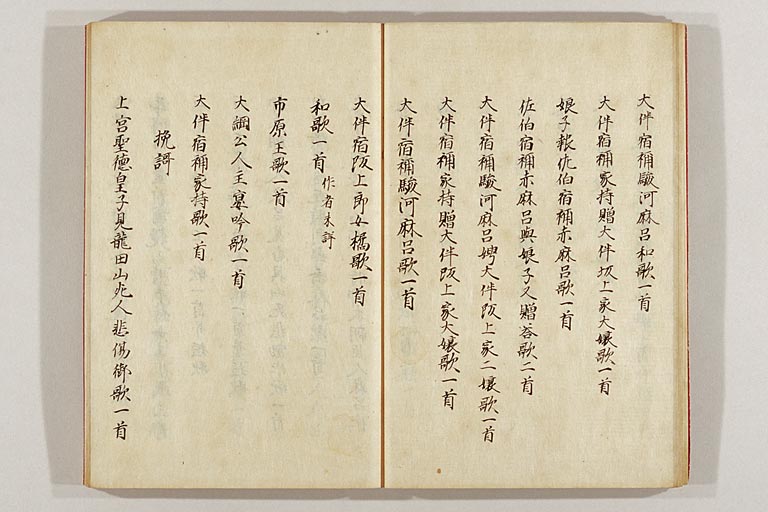 大伴宿祢駿河麻呂和歌一首
大伴宿祢家持贈大伴坂上家大娘歌一首
娘子報佐伯宿祢赤麻呂歌一首
佐伯宿祢赤麻呂與娘子又贈答歌二首
大伴宿祢駿河麻呂娉大伴阪上家二娘歌一首
大伴宿祢家持贈大伴阪上家大娘歌一首
大伴宿祢駿河麻呂歌一首
大伴宿阪上郎女橘歌一首
和歌一首 作者未詳
市原王歌一首
大網公人主宴吟歌一首
大伴宿祢家持歌一首
挽謌
上宮聖德皇子見龍田山死人悲傷御歌一首